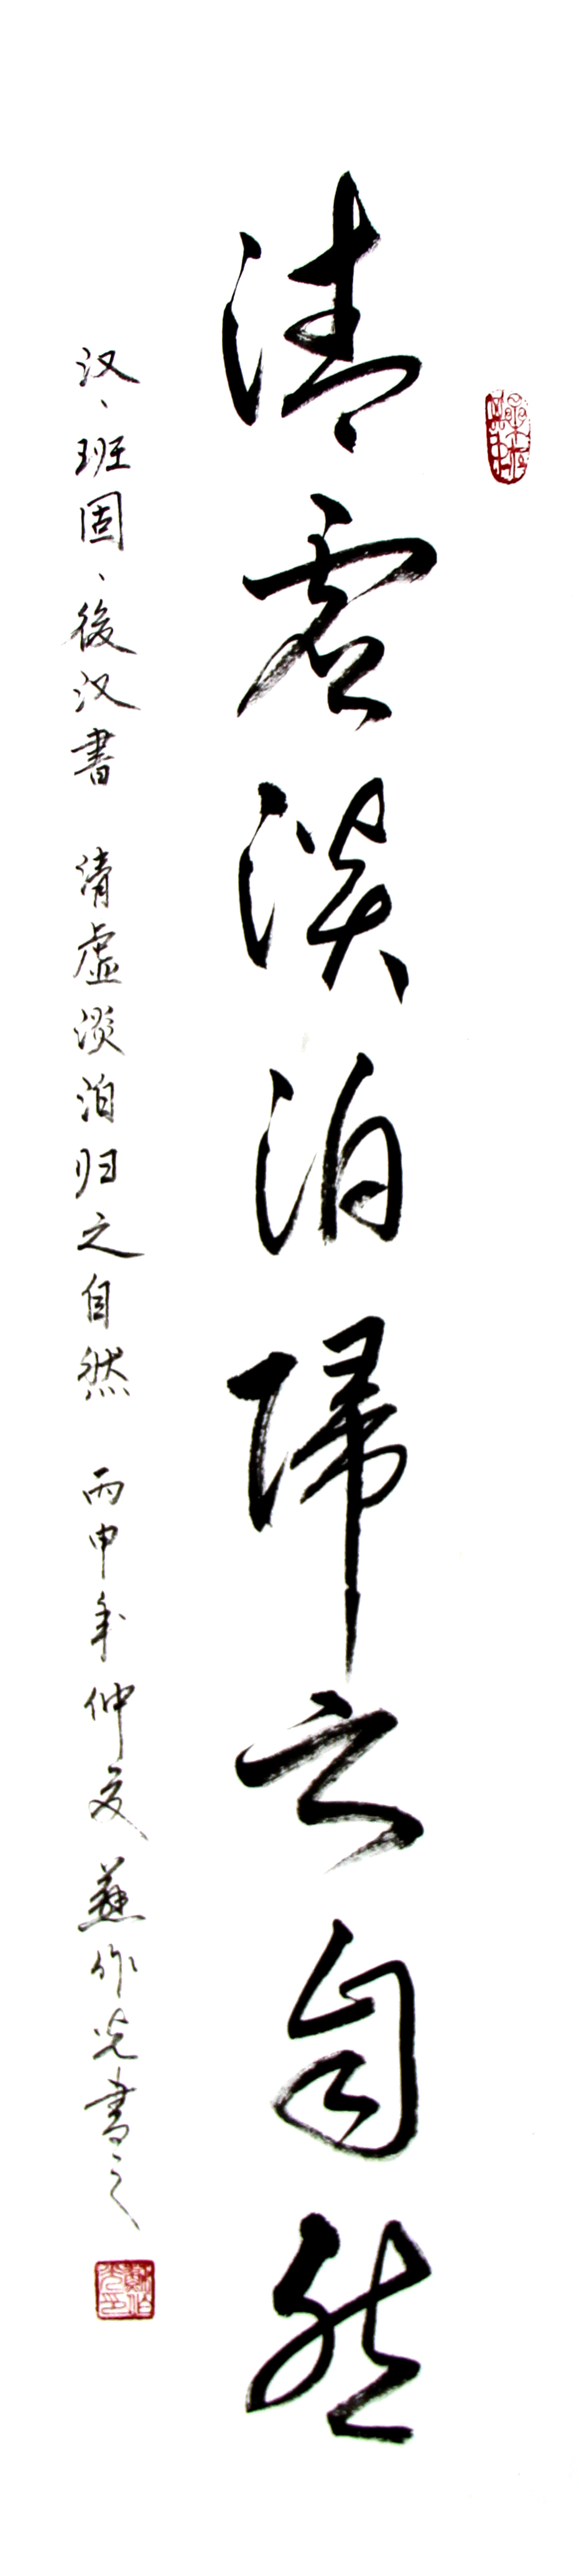 清虚淡泊歸之自然
汉、班固、後汉書 清虚淡泊归之自然 丙申年仲夏 作光書之